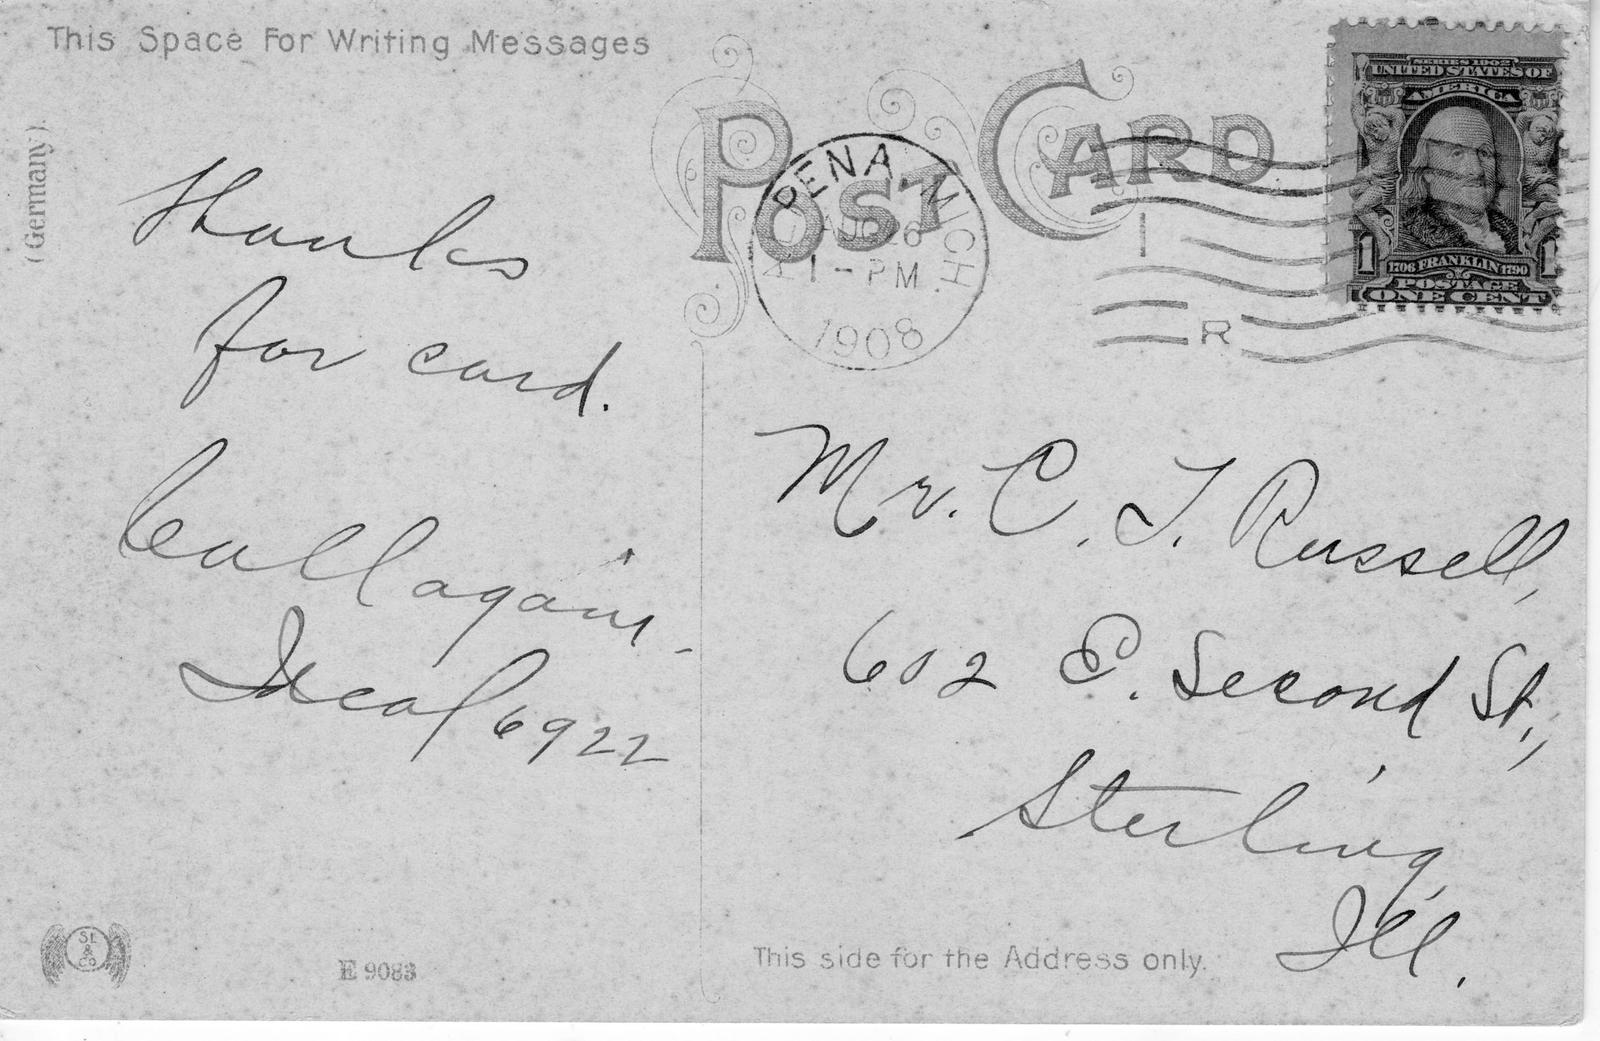 This Space For Writing Messages
(Germany).
POST CARD
ALPENA, MICH
AUG 26
1 - PM
1908
I
R
SERIES 1902
UNITED STATES OF
AMERICA
1 1
1706 FRANKLIN 1790
POSTAGE
ONE CENT
Thanks
for card.
Call again -
Ideal 6922
Mr. C. T. Russell,
602 E. Second St.,
Sterling,
Ill.
SL
&
CO
E 9083
This side for the Address only.